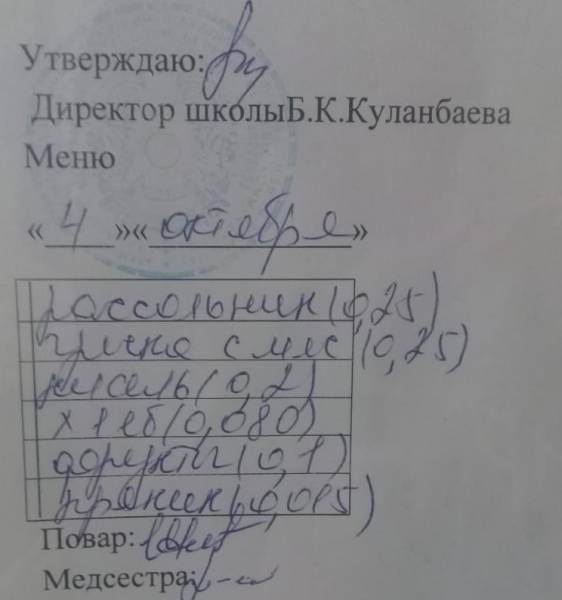 Утверждаю:
Директор школыБ.К.Куланбаева
Меню
«4»«октября»
рассольник (0,25)
гречка с мяс (0,25)
кисель (0,2)
хлеб (0,080)
фрукты (0,1)
пряник (0,015)
Повар:
Медсестра: